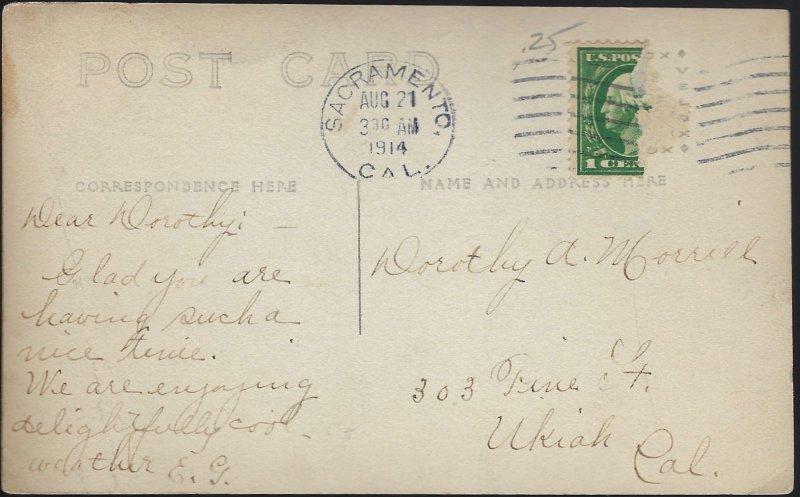 POST CARD
.25
SACRAMENTO,
AUG 21
3 30 AM
1914
CAL.
U.S. POS
1 CEN
CORRESPONDENCE HERE
NAME AND ADDRESS HERE
Dear Dorothy; —
Glad you are
having such a
nice time.
We are enjoying
delightfully cool
weather E. G.
Dorothy A. Morrill
303 Pine St.
Ukiah Cal.